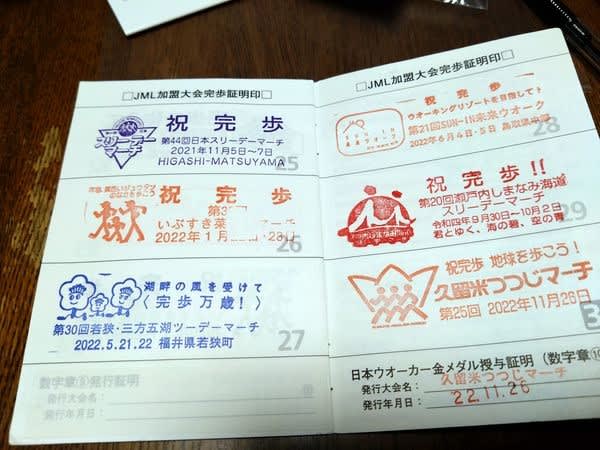 □JML加盟大会完歩証明印□
スリーデー
マーチ
祝 完 歩
第44回日本スリーデーマーチ
2021年11月5日~7日
HIGASHI-MATSUYAMA
25
祝 完 歩
いぶすき菜 マーチ
2022年1月 23日
26
湖畔の風を受けて
〈完歩万歳!〉
第30回若狭・三方五湖ツーデーマーチ
2022.5.21.22 福井県若狭町
27
数字章⑨発行証明
発行大会名:
発行年月日:
□JML加盟大会完歩証明印□
祝 完 歩
ウオーキングリゾートを目指して!
第21回SUN-IN未来ウオーク
2022年6月4日・5日 鳥取県
SUN-IN
未来ウオーク
28
祝 完 歩!!
第20回瀬戸内しまなみ海道
スリーデーマーチ
令和四年9月30日~10月2日
君とゆく、海の碧、空の青
29
祝完歩 地球を歩こう!
久留米つつじマーチ
第25回 2022年11月26日
3
日本ウオーカー金メダル授与証明(数字章⑩
発行大会名: 久留米つつじマーチ
発行年月日: 22.11.26